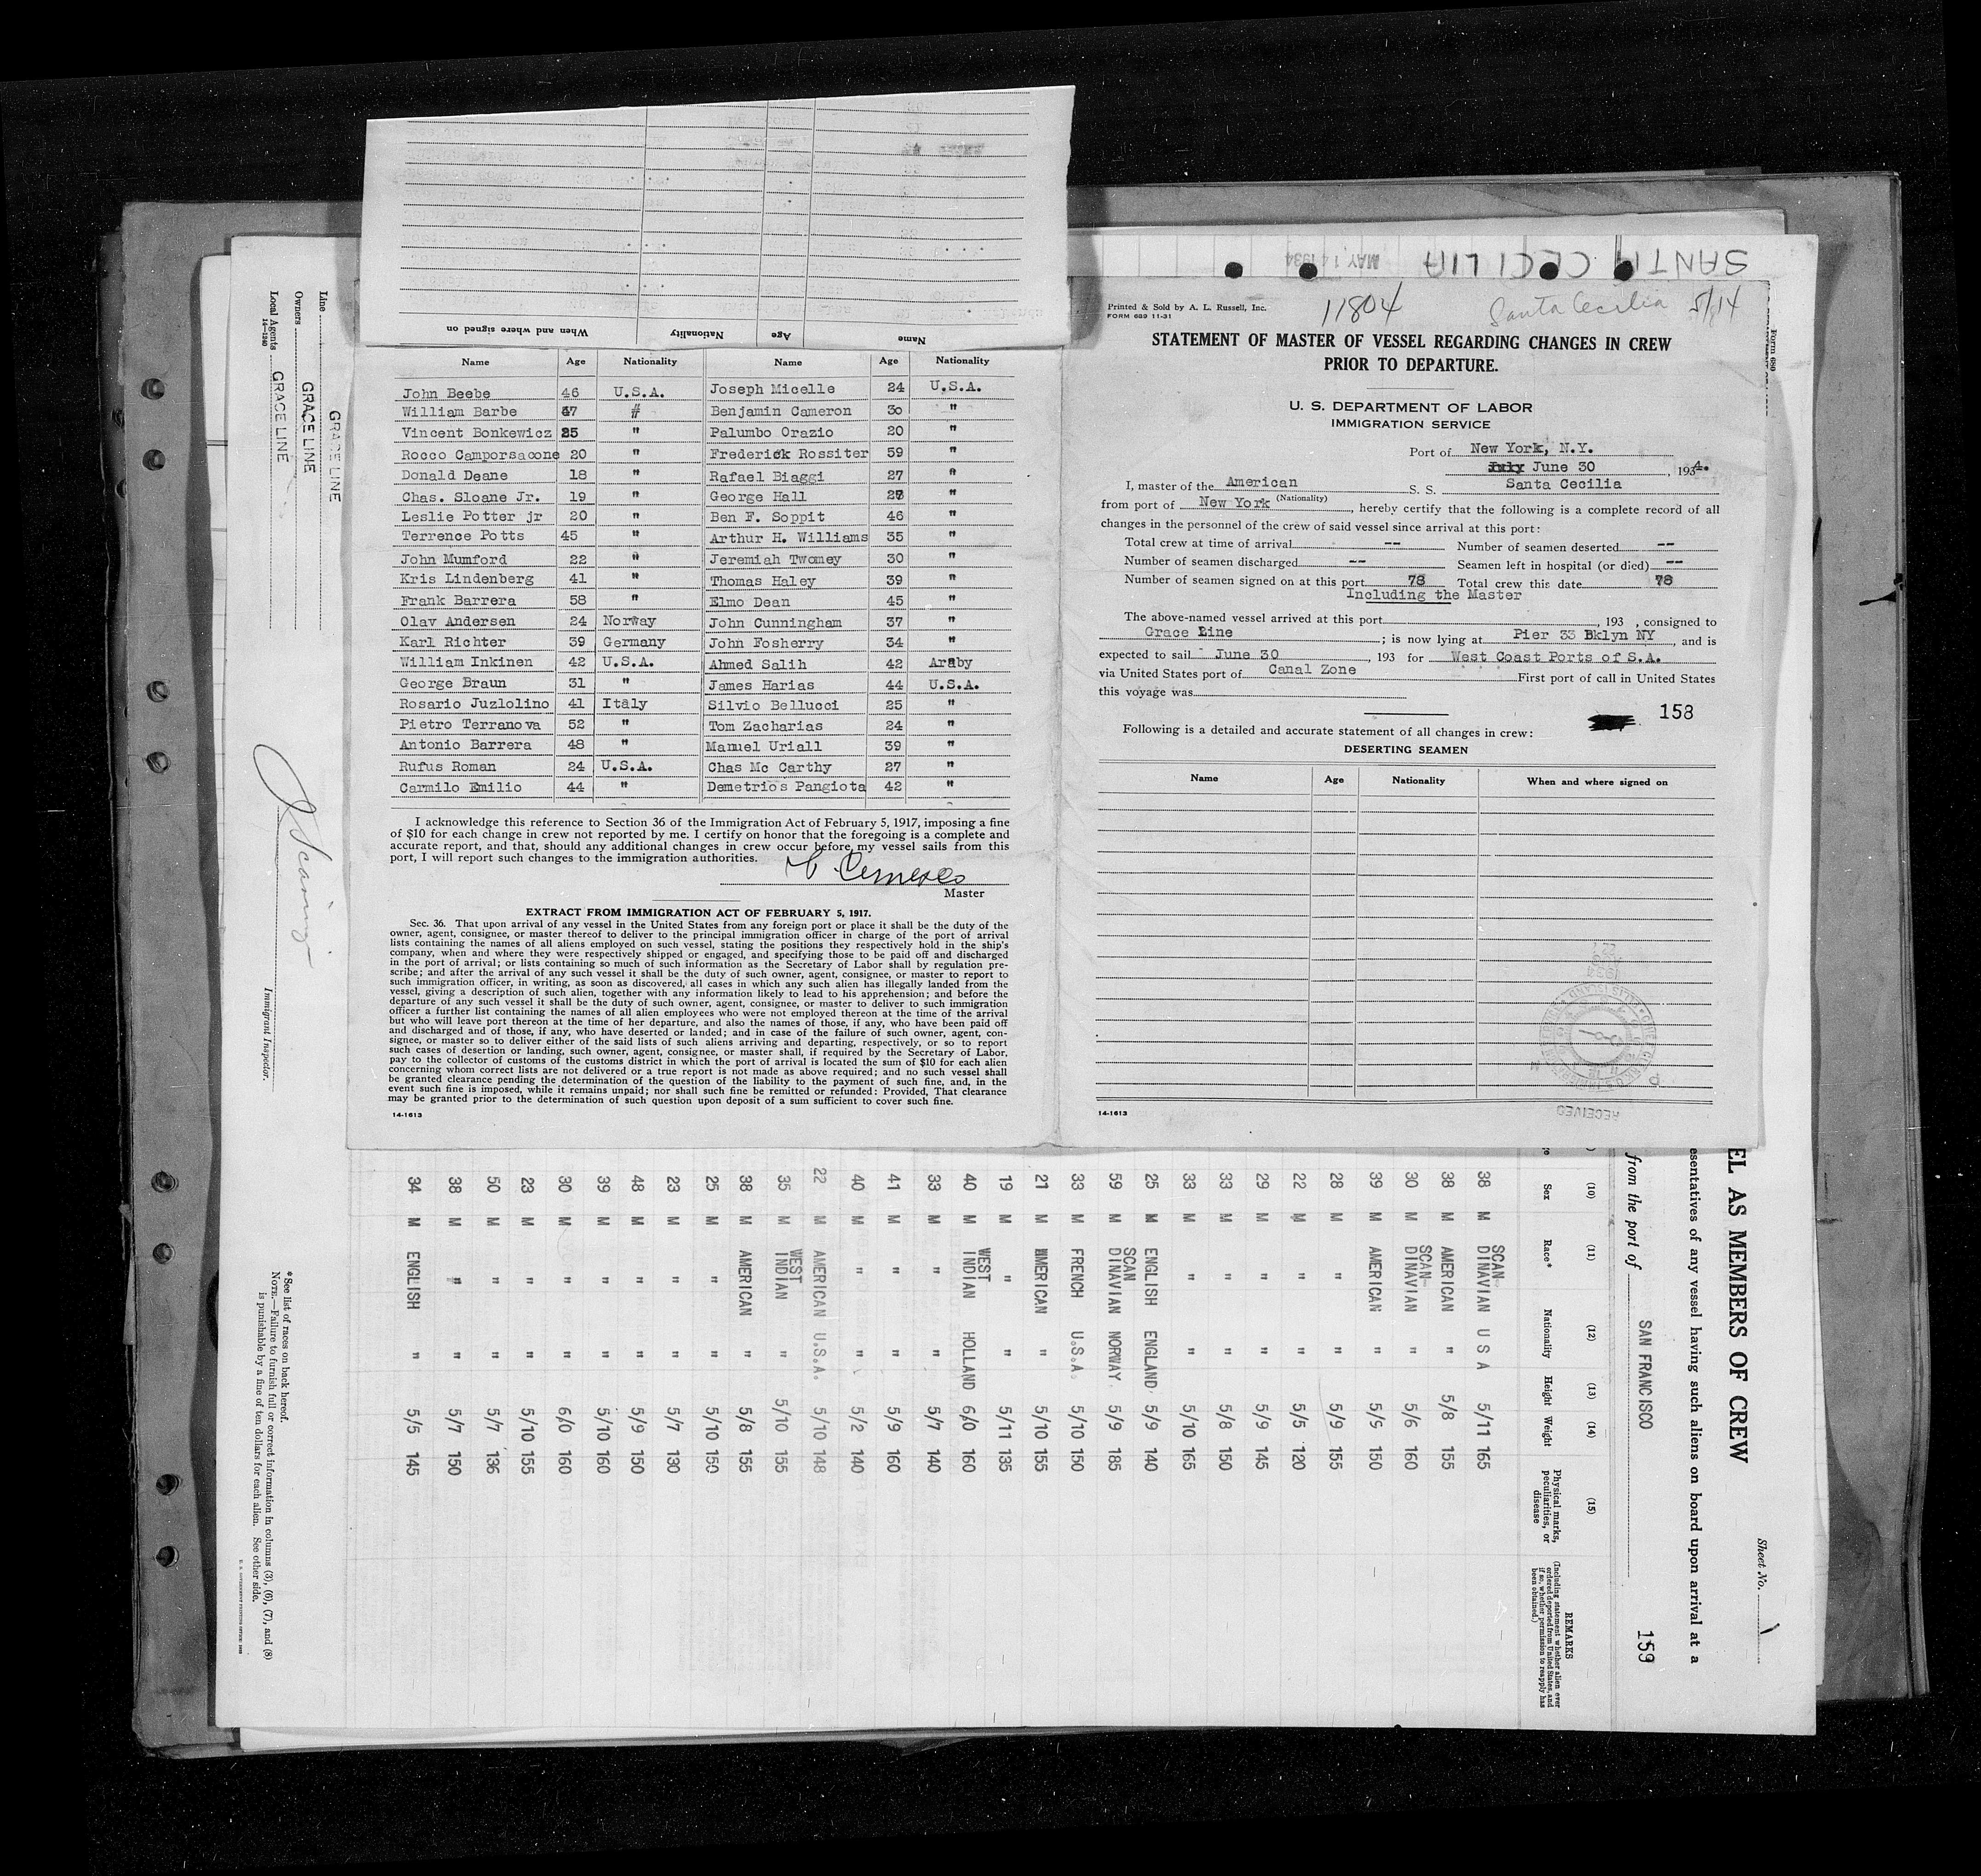 When and where signed on Nationality Age Name
Name Age Nationality Name Age Nationality
John Beebe 46 U.S.A. Joseph Micelle 24 U.S.A.
William Barbe 47 " Benjamin Cameron 30 "
Vincent Bonkewicz 25 " Palumbo Orazio 20 "
Rocco Camporsacone 20 " Frederick Rossiter 59 "
Donald Deane 18 " Rafael Biaggi 27 "
Chas. Sloane Jr. 19 " George Hall 27 "
Leslie Potter jr 20 " Ben F. Soppit 46 "
Terrence Potts 45 " Arthur H. Williams 35 "
John Mumford 22 " Jeremiah Twomey 30 "
Kris Lindenberg 41 " Thomas Haley 39 "
Frank Barrera 58 " Elmo Dean 45 "
Olav Andersen 24 Norway John Cunningham 37 "
Karl Richter 39 Germany John Fosherry 34 "
William Inkinen 42 U.S.A. Ahmed Salih 42 Araby
George Braun 31 " James Harias 44 U.S.A.
Rosario Juzlolino 41 Italy Silvio Bellucci 25 "
Pietro Terranova 52 " Tom Zacharias 24 "
Antonio Barrera 48 " Manuel Uriall 39 "
Rufus Roman 24 U.S.A. Chas Mc Carthy 27 "
Carmilo Emilio 44 " Demetrios Pangiota 42 "
I acknowledge this reference to Section 36 of the Immigration Act of February 5, 1917, imposing a fine
of $10 for each change in crew not reported by me. I certify on honor that the foregoing is a complete and
accurate report, and that, should any additional changes in crew occur before my vessel sails from this
port, I will report such changes to the immigration authorities.
Master
EXTRACT FROM IMMIGRATION ACT OF FEBRUARY 5, 1917.
Sec. 36. That upon arrival of any vessel in the United States from any foreign port or place it shall be the duty of the
owner, agent, consignee, or master thereof to deliver to the principal immigration officer in charge of the port of arrival
lists containing the names of all aliens employed on such vessel, stating the positions they respectively hold in the ship's
company, when and where they were respectively shipped or engaged, and specifying those to be paid off and discharged
in the port of arrival; or lists containing so much of such information as the Secretary of Labor shall by regulation pre-
scribe; and after the arrival of any such vessel it shall be the duty of such owner, agent, consignee, or master to report to
such immigration officer, in writing, as soon as discovered, all cases in which any such alien has illegally landed from the
vessel, giving a description of such alien, together with any information likely to lead to his apprehension; and before the
departure of any such vessel it shall be the duty of such owner, agent, consignee, or master to deliver to such immigration
officer a further list containing the names of all alien employees who were not employed thereon at the time of the arrival
but who will leave port thereon at the time of her departure, and also the names of those, if any, who have been paid off
and discharged and of those, if any, who have deserted or landed; and in case of the failure of such owner, agent, con-
signee, or master so to deliver either of the said lists of such aliens arriving and departing, respectively, or so to report
such cases of desertion or landing, such owner, agent, consignee, or master shall, if required by the Secretary of Labor,
pay to the collector of customs of the customs district in which the port of arrival is located the sum of $10 for each alien
concerning whom correct lists are not delivered or a true report is not made as above required; and no such vessel shall
be granted clearance pending the determination of the question of the liability to the payment of such fine, and, in the
event such fine is imposed, while it remains unpaid; nor shall such fine be remitted or refunded: Provided, That clearance
may be granted prior to the determination of such question upon deposit of a sum sufficient to cover such fine.
14-1613
SANTA CECILIA MAY 14 1934
Printed & Sold by A. L. Russell, Inc.
FORM 689 11-31
11804 Santa Cecilia 5/14
STATEMENT OF MASTER OF VESSEL REGARDING CHANGES IN CREW
PRIOR TO DEPARTURE.
U. S. DEPARTMENT OF LABOR
IMMIGRATION SERVICE
Port of New York, N.Y.
June 30, 1934.
I, master of the American S. S. Santa Cecilia
(Nationality)
from port of New York, hereby certify that the following is a complete record of all
changes in the personnel of the crew of said vessel since arrival at this port:
Total crew at time of arrival -- Number of seamen deserted --
Number of seamen discharged -- Seamen left in hospital (or died) --
Number of seamen signed on at this port 78 Total crew this date 78
Including the Master
The above-named vessel arrived at this port, 193 , consigned to
Grace Line; is now lying at Pier 33 Bklyn NY, and is
expected to sail June 30, 193 for West Coast Ports of S.A.
via United States port of Canal Zone First port of call in United States
this voyage was
158
Following is a detailed and accurate statement of all changes in crew:
DESERTING SEAMEN
Name Age Nationality When and where signed on
RECEIVED
14-1613
Form 680
Line GRACE LINE
Owners GRACE LINE
Local Agents GRACE LINE
14-1240
Immigrant Inspector.
*See list of races on back hereof.
NOTE.—Failure to furnish full or correct information in columns (3), (6), (7), and (8)
is punishable by a fine of ten dollars for each alien. See other side.
Sheet No. 1
EL AS MEMBERS OF CREW
esentatives of any vessel having such aliens on board upon arrival at a
from the port of SAN FRANCISCO 159
(10) (11) (12) (13) (14) (15)
Sex Race* Nationality Height Weight Physical marks, peculiarities, or disease
REMARKS
(Including statement whether alien ever ordered deported from United States, and if so, whether permission to reapply has been obtained.)
38 M SCAN-DINAVIAN U S A 5/11 165
38 M AMERICAN " 5/8 155
30 M SCAN-DINAVIAN " 5/6 160
39 M AMERICAN " 5/9 150
28 M " " 5/9 155
22 M " " 5/5 120
29 M " " 5/9 145
33 M " " 5/8 150
33 M " " 5/10 165
25 M ENGLISH ENGLAND 5/9 140
59 M SCAN DINAVIAN NORWAY 5/9 185
33 M FRENCH U.S.A. 5/10 150
21 M AMERICAN " 5/10 155
19 M " " 5/11 135
40 M WEST INDIAN HOLLAND 6/0 160
33 M " " 5/7 140
41 M " " 5/9 160
40 M " " 5/2 140
22 M AMERICAN U.S.A. 5/10 148
35 M WEST INDIAN " 5/10 155
38 M AMERICAN " 5/8 155
25 M " " 5/10 150
23 M " " 5/7 130
48 M " " 5/9 150
39 M " " 5/10 160
30 M " " 6/0 160
23 M " " 5/10 155
50 M " " 5/7 136
38 M " " 5/7 150
34 M ENGLISH " 5/5 145